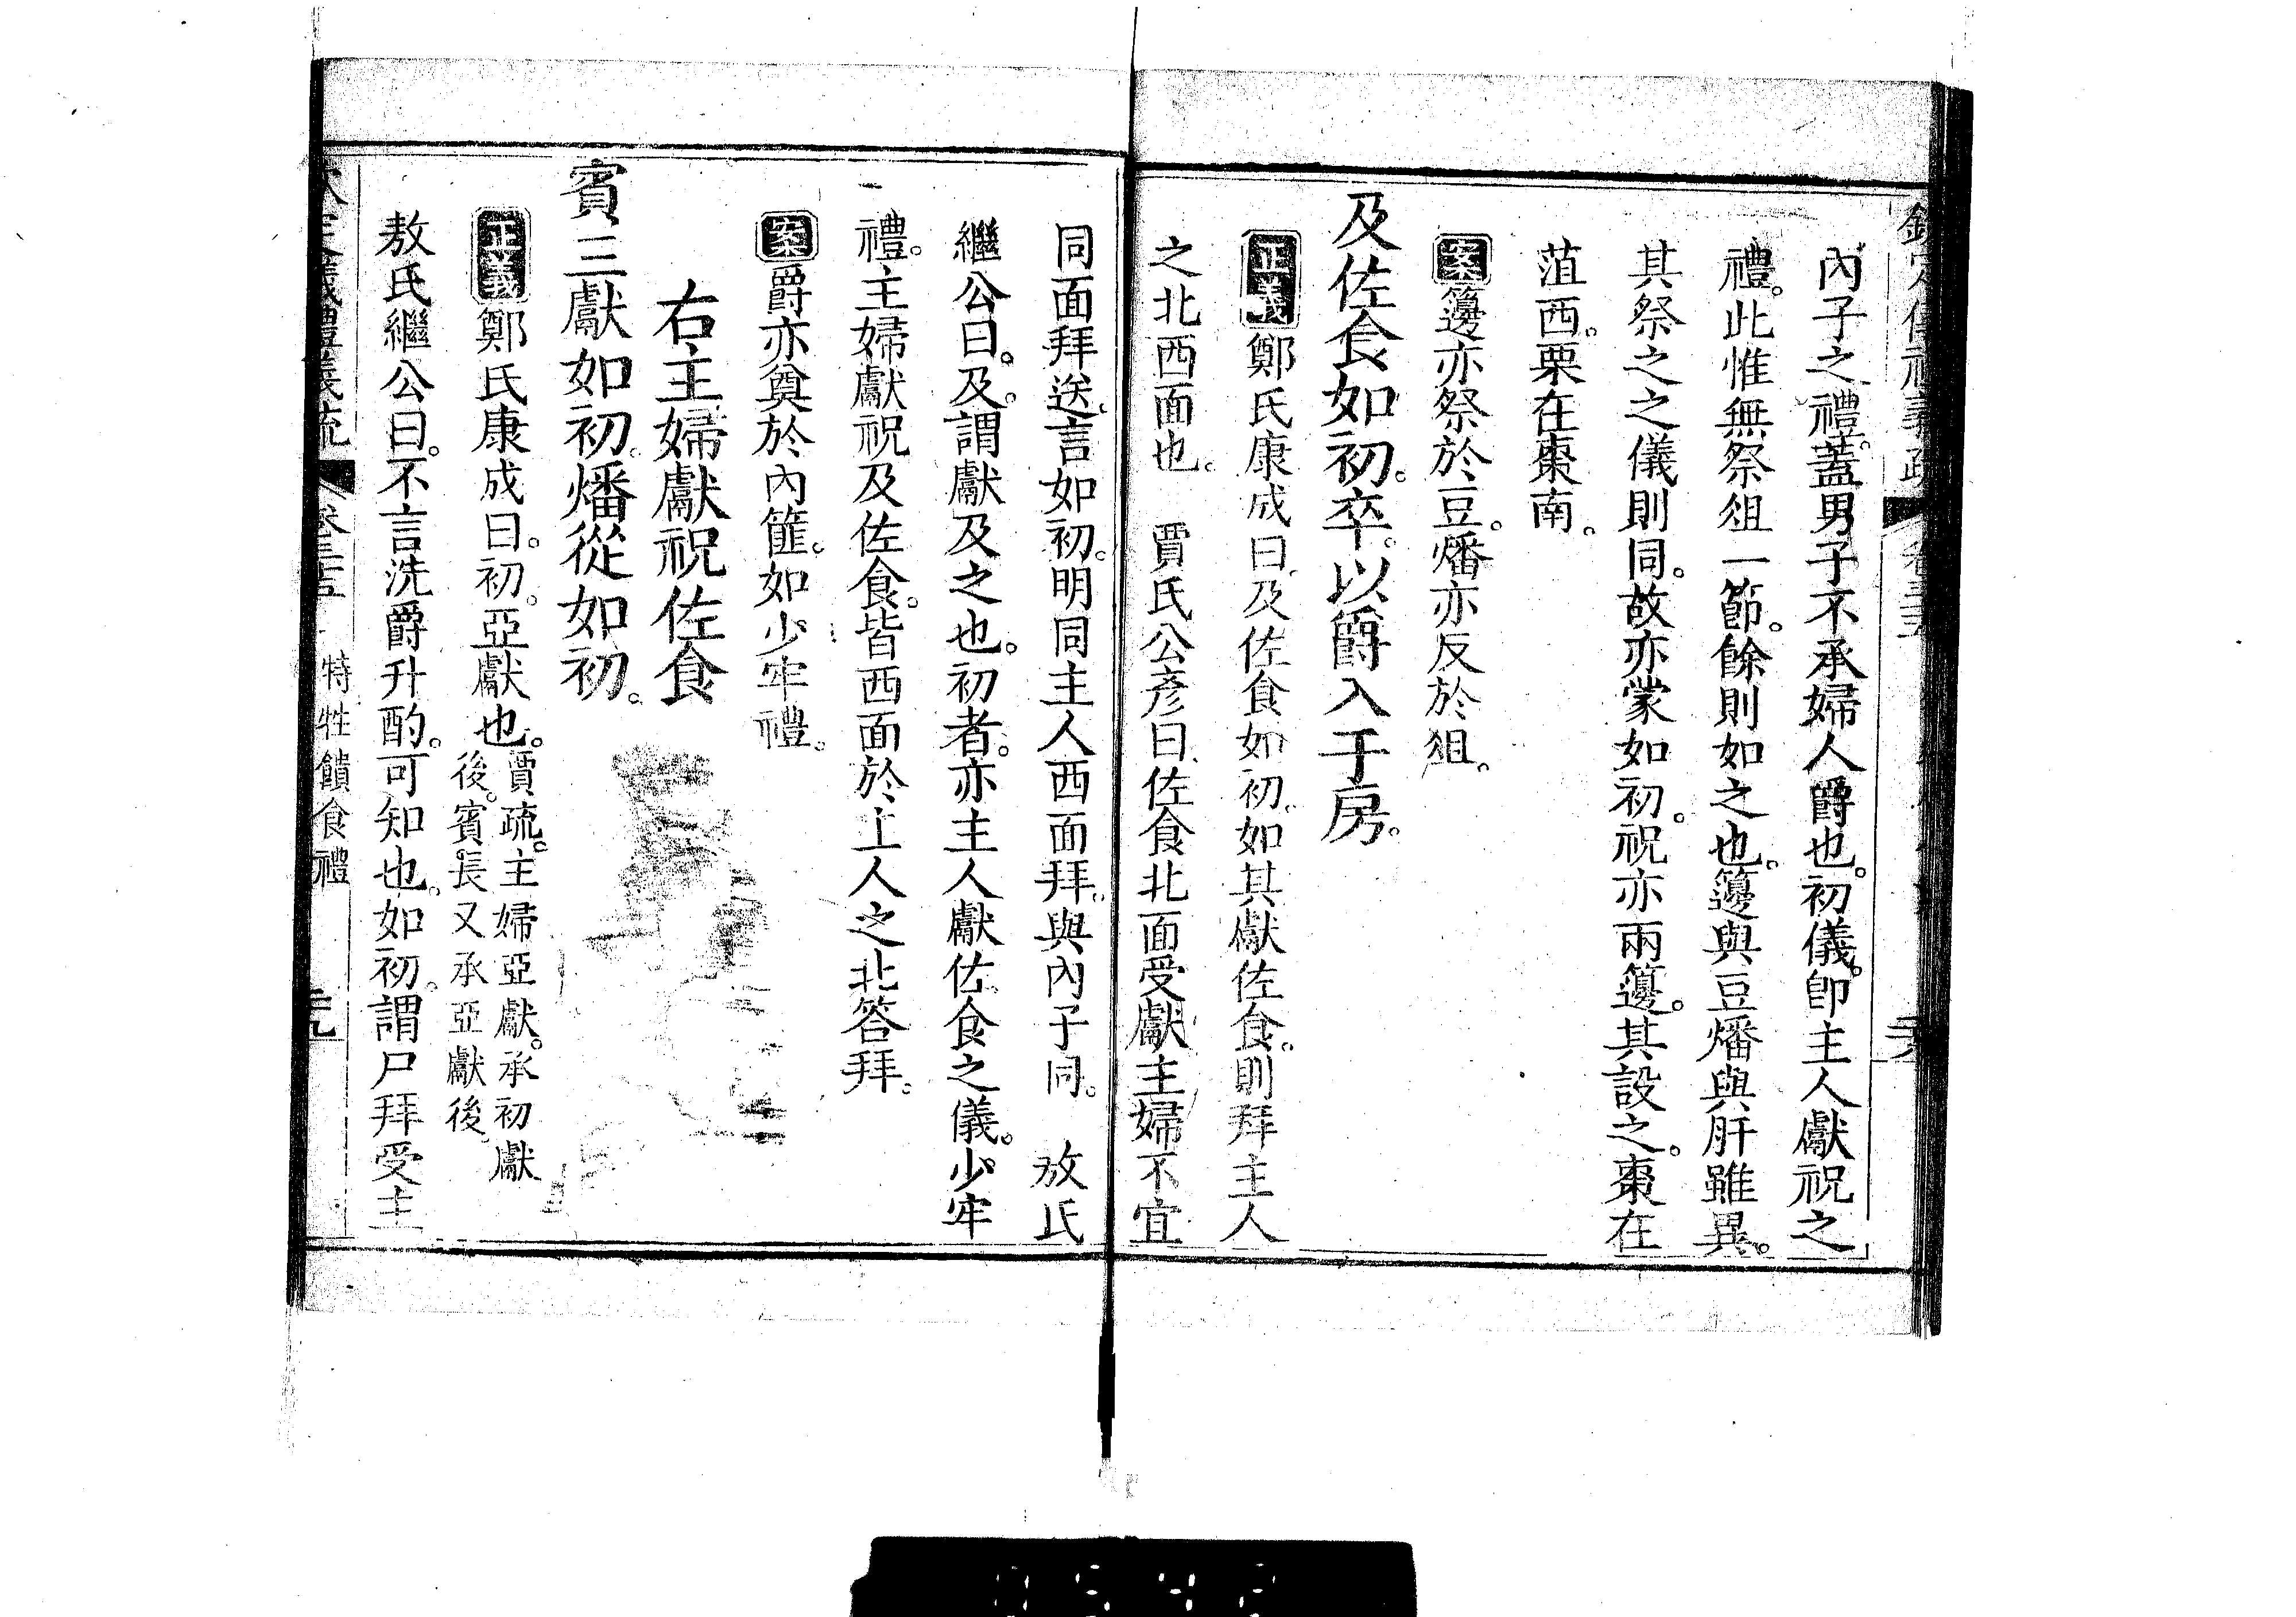 內子之禮。蓋男子不承婦人爵也。初儀。卽主人獻祝之
禮。此惟無祭俎一節。餘則如之也。籩與豆燔與肝雖異。
其祭之之儀則同。故亦蒙如初。祝亦兩籩。其設之。棗在
菹西。栗在棗南。
案籩亦祭於豆。燔亦反於俎。
及佐食如初。卒。以爵入于房。
正義鄭氏康成曰。及佐食如初。如其獻佐食。則拜主人
之北西面也。 賈氏公彥曰。佐食北面受獻。主婦不宜
同面拜送。言如初。明同主人西面拜。與內子同。 敖氏
繼公曰。及。謂獻及之也。初者。亦主人獻佐食之儀。少牢
禮。主婦獻祝及佐食。皆西面於主人之北答拜。
案爵亦奠於內篚。如少牢禮。
右主婦獻祝佐食
賓三獻如初。燔從如初。
正義鄭氏康成曰。初。亞獻也。賈疏。主婦亞獻。承初獻
後。賓長又承亞獻後。
敖氏繼公曰。不言洗爵升酌。可知也。如初。謂尸拜受。主
欽定儀禮義疏 卷三十五 特牲饋食禮